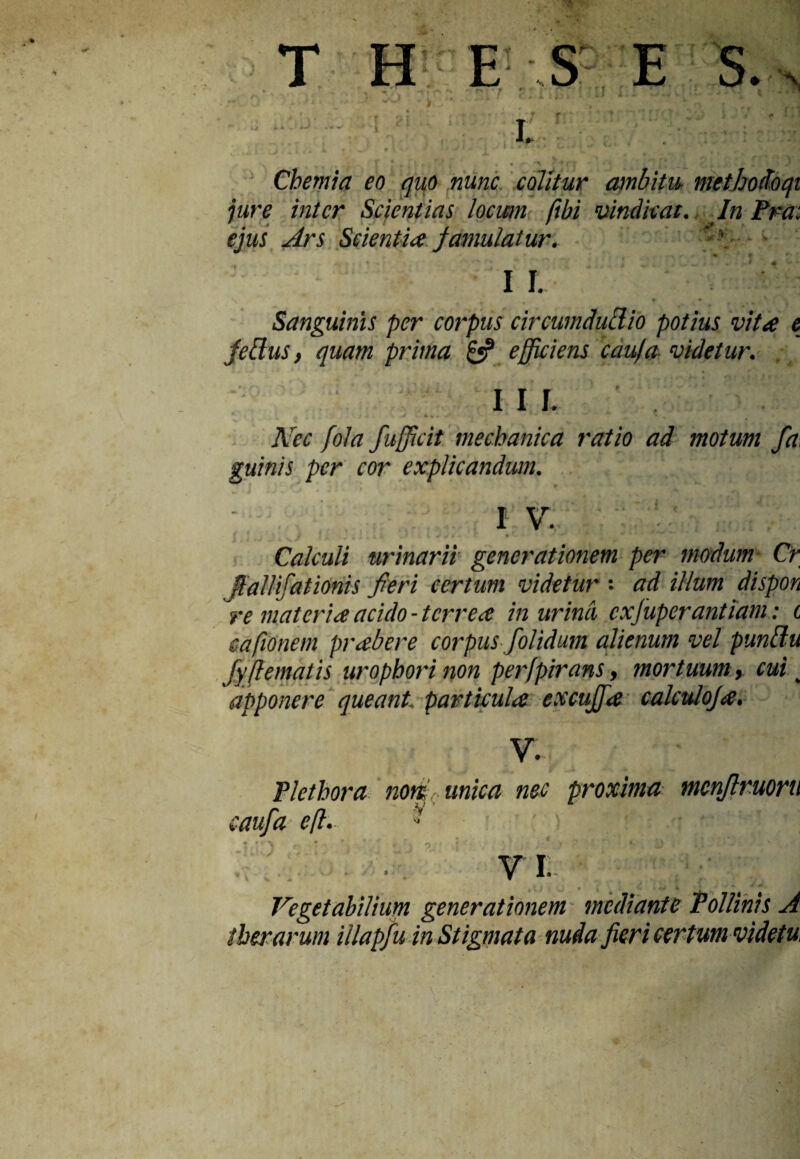 THESES.
I.
Chemia eo quo nunc colitur ambitu methodoqi
jure inter Scientias locum ſibi vindicat. In Pra
ejus Ars Scientiæ famulatur.
II.
Sanguinis per corpus circumductio potius vitæ e
fectus, quam prima & efficiens cauſa videtur.
III.
Nec ſola ſufficit mechanica ratio ad motum ſa
guinis per cor explicandum.
IV.
Calculi urinarii generationem per modum Cr
ſtalliſationis fieri certum videtur : ad illum dispon
re materiæ acido-terreæ in urinâ exſuperantiam: c
caſionem præbere corpus ſolidum alienum vel punctu
ſyſtematis urophori non perſpirans, mortuum, cui
apponere queant particulæ excuſſæ calculoſæ.
V.
Plethora non unica nec proxima menſtruoru
cauſa eſt.
VI.
Vegetabilium generationem mediante Pollinis A
therarum illapſu in Stigmata nuda fieri certum videtu